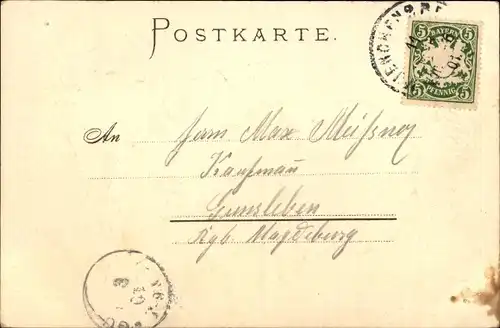 POSTKARTE.
5 BAYERN 5
5 PFENNIG 5
An Herrn Max Meißner
Kaufmann
Gunsleben
Rgb. Magdeburg